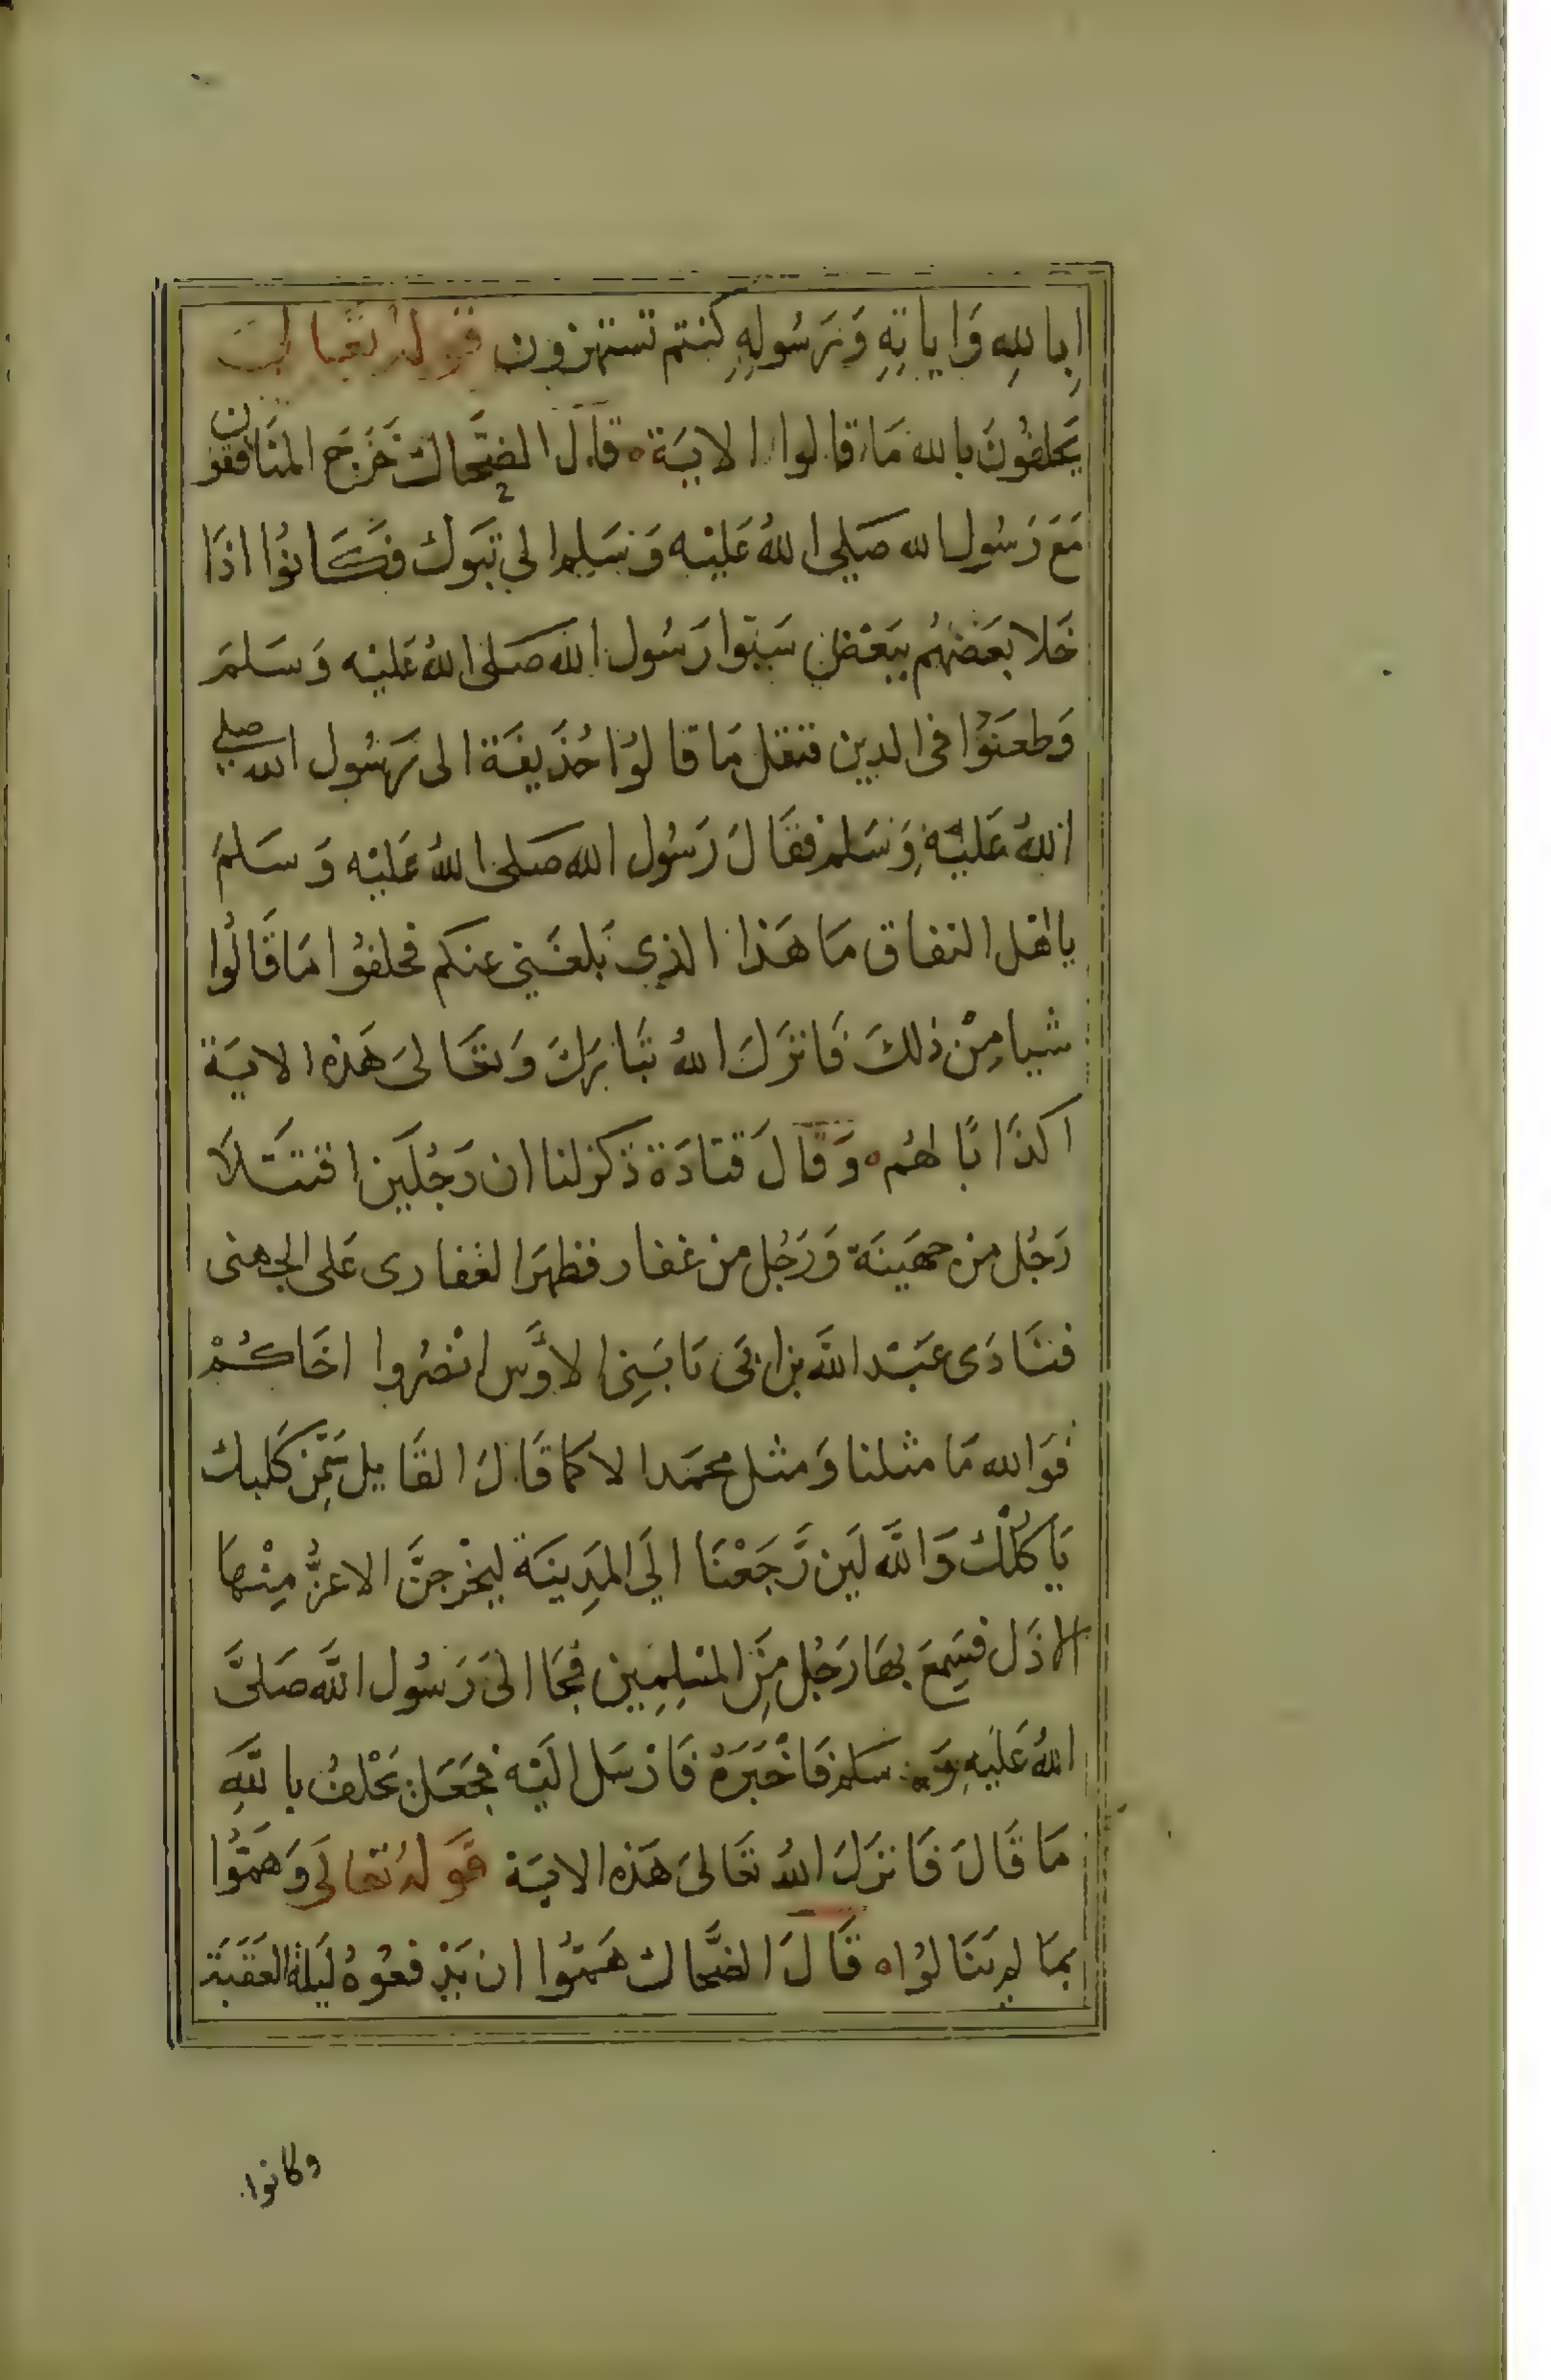 اِبا للهِ وَايا تِهِ وَرَسُولِهِ كنتم تستهزون قوله تعالى
يَحلفُونَ بالله مَا قالوا الايَة ه قالَ الضحَّاك خَرَجَ المنَافقون
مَعَ رَسُول الله صَلى اللهُ عَليْه وَسَلم الي تبَوك فكَانوُا اذَا
خَلا بَعضهُم ببَعْض سَبّوا رَسُول الله صَلى اللهُ عَليْه وَسَلمَ
وَطعَنوُا فى الدين فنقل مَا قالوُا حُذَيفَة الى رَسُول الله صلى
اللهُ عَليْهِ وَسَلم فقَالَ رَسُول الله صَلى اللهُ عَليْه وَسَلمَ
يا اهْل النفاق مَا هَذا الذِى بَلغَني عنكم فحلفوُا مَا قَالُوا
شيا مِنْ ذلكَ فَانزَلَ اللهُ تبَارَكَ وَتعَالىَ هَذِه الايَة
اكذَابًا لهُم ه وَقالَ قتادَة ذكرلنا ان رَجُلَين اقتتَلَا
رَجُل من جهَينَة وَرَجُل من غفار فظهَر الغفارى عَلى الجهنى
فنَادَى عَبْد اللَّه بن ابَى يَا بَنِى الاوَّس انْصُروا اخَاكُمْ
فوَالله مَا مثلنا وَمثل محمَدا لا كما قَالَ القَايل سَمِّن كَلبك
يَا كلُكْ وَاللَّه لَين رَّجَعْنَا الَي المَدِينَة ليُخْرجَنَّ الاعزُّ مِنْهَا
الاذَل فسَمِعَ بهَا رَجُل مِنَ المسْلِمِين فجَا الىَ رَسُول اللَّه صَلىَّ
اللهُ عَليْهِ وَسَلم فَاخْبَرَهُ فَارْسَل الَيْه فجَعَل يَحْلفُ باللَّهِ
مَا قَالَ فَانزَلَ اللهُ تعَالىَ هَذِه الايَة قَولهُ تعَالىَ وَهَمُّوا
بمَا لم يَنَالوُا ه قَالَ الضَّحاك هَمُّوا ان يَدْفعُوهُ لَيلة العَقَبَة
وكانوا